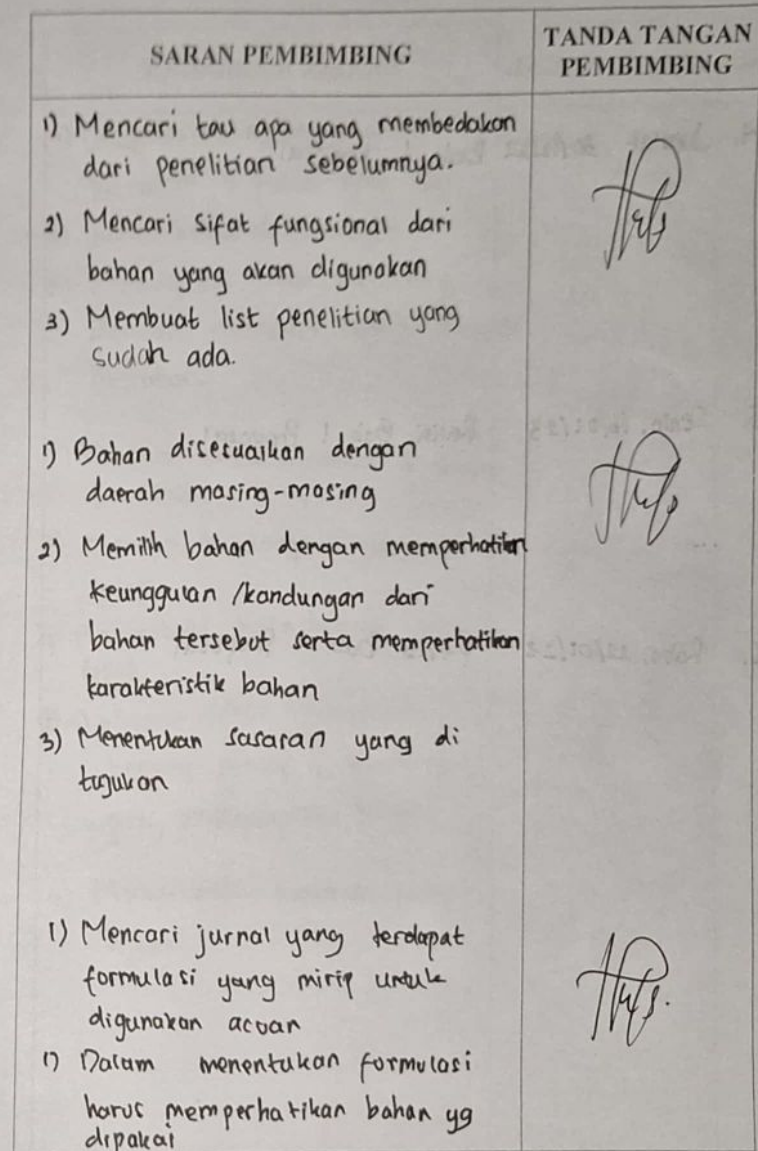 SARAN PEMBIMBING
TANDA TANGAN
PEMBIMBING
1) Mencari tau apa yang membedakan
dari penelitian sebelumnya.
2) Mencari sifat fungsional dari
bahan yang akan digunakan
3) Membuat list penelitian yang
sudah ada.
1) Bahan disesuaikan dengan
daerah masing-masing
2) Memilih bahan dengan memperhatikan
keunggulan /kandungan dari
bahan tersebut serta memperhatikan
karakteristik bahan
3) Menentukan sasaran yang di
tujukan
1) Mencari jurnal yang terdapat
formulasi yang mirip untuk
digunakan acuan
1) Dalam menentukan formulasi
harus memperhatikan bahan yg
dipakai